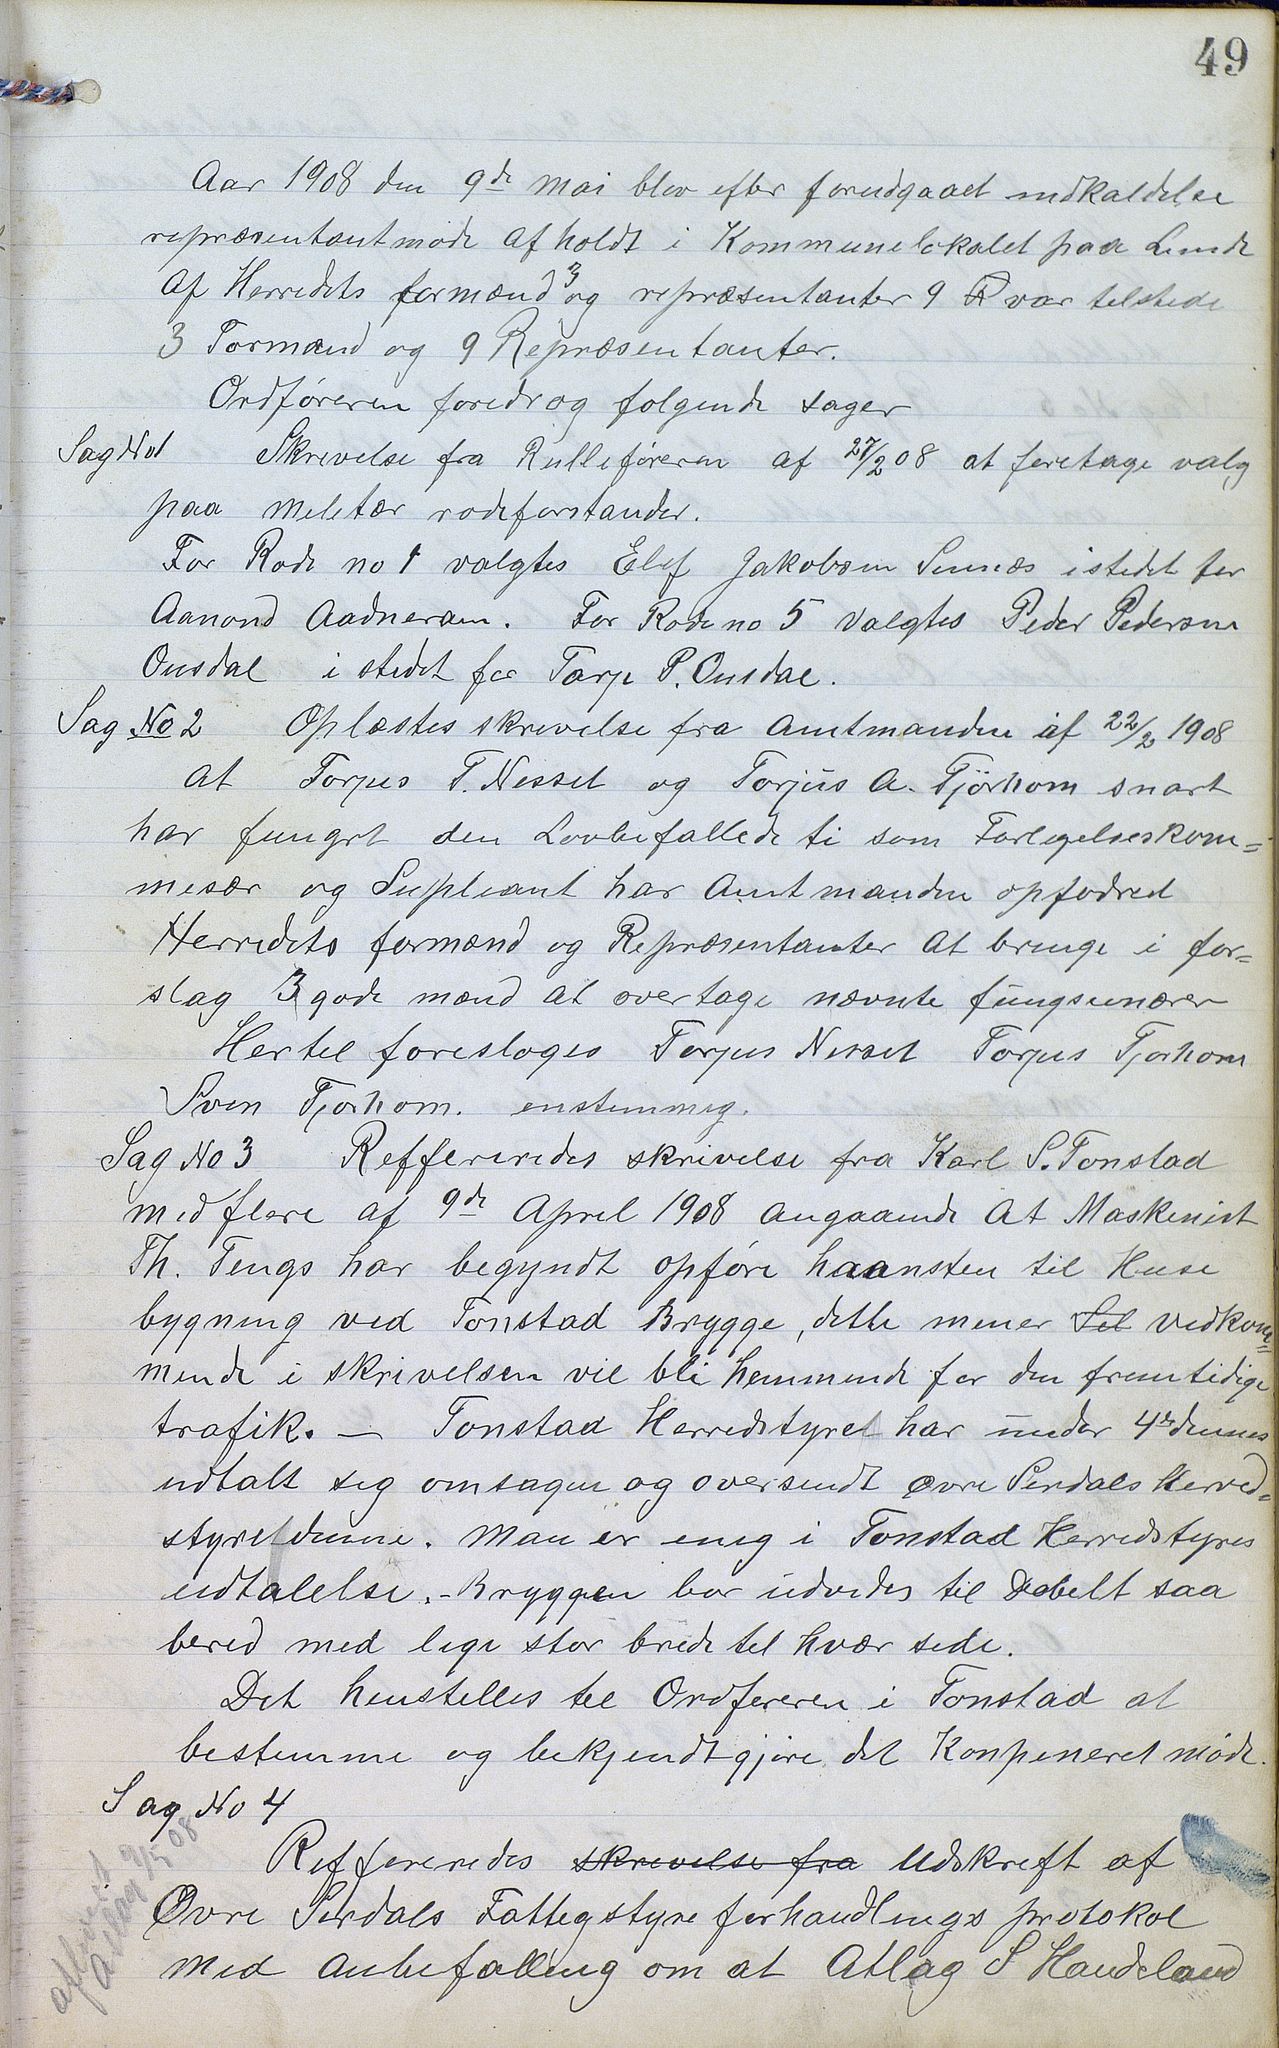 49
Aar 1908 den 9de mai blev efter forudgaaet indkaldelse
repræsentantmøde afholdt i Kommunelokalet paa Lunde
af Herredets formænd 3 og repræsentanter 9 var tilstede
3 Formænd og 9 Repræsentanter.
Ordføreren foredrog følgende sager
Sag No 1 Skrivelse fra Rulleføreren af 27/2 08 at foretage valg
paa meletær rodeforstander.
For Rode no 1 valgtes Elef Jakobsen Sinnæs istedet for
Aanond Aadneram. For Rode no 5 valgtes Peder Pedersen
Ousdal i stedet for Tarje P. Ousdal.
Sag No 2 Oplæstes skrivelse fra Amtmanden af 22/2 1908
at Torjus T. Nesset og Torjus A. Tjörhom snart
har fungrt den Lovbefallede ti som Forlegelseskom=
mesær og Supleant har Amtmanden opfodred
Herredets formænd og Repræsentanter at bringe i for=
slag 3 gode mænd at overtage nævnte fungsunærer
Hertel foresloges Torjus Nesset Torjus Tjorhom
Sven Tjorhom. enstemmig.
Sag No 3 Reffereredes skrivelse fra Karl S. Tonstad
med flere af 9de April 1908 angaaende at Maskinist
Th. Tengs har begyndt opføre haansten til Huse
bygning ved Tonstad Brygge, dette mener Lel vedkom=
mende i skrivelsen vil bli hemmende for den fremtidige
trafik. — Tonstad Herredstyret har under 4de dennes
udtalt seg omsagen og oversendt Øvre Serdals Herred=
styret denne. Man er eneg i Tonstad Herredstyres
udtalelse. - Bryggen bør udvides til Dobelt saa
bered med lige stor brede tel hvær sede.
Det henstilles tel Ordføreren i Tonstad at
bestemme og bekjendtgjøre det Konpeneret møde.
Sag No 4
Reffereredes skrevelse fra Udskreft af
Øvre Serdals Fattegstyre forhandlings protokol
med Anbefalling om at Atlag S Handeland
Aslag 9/5 08